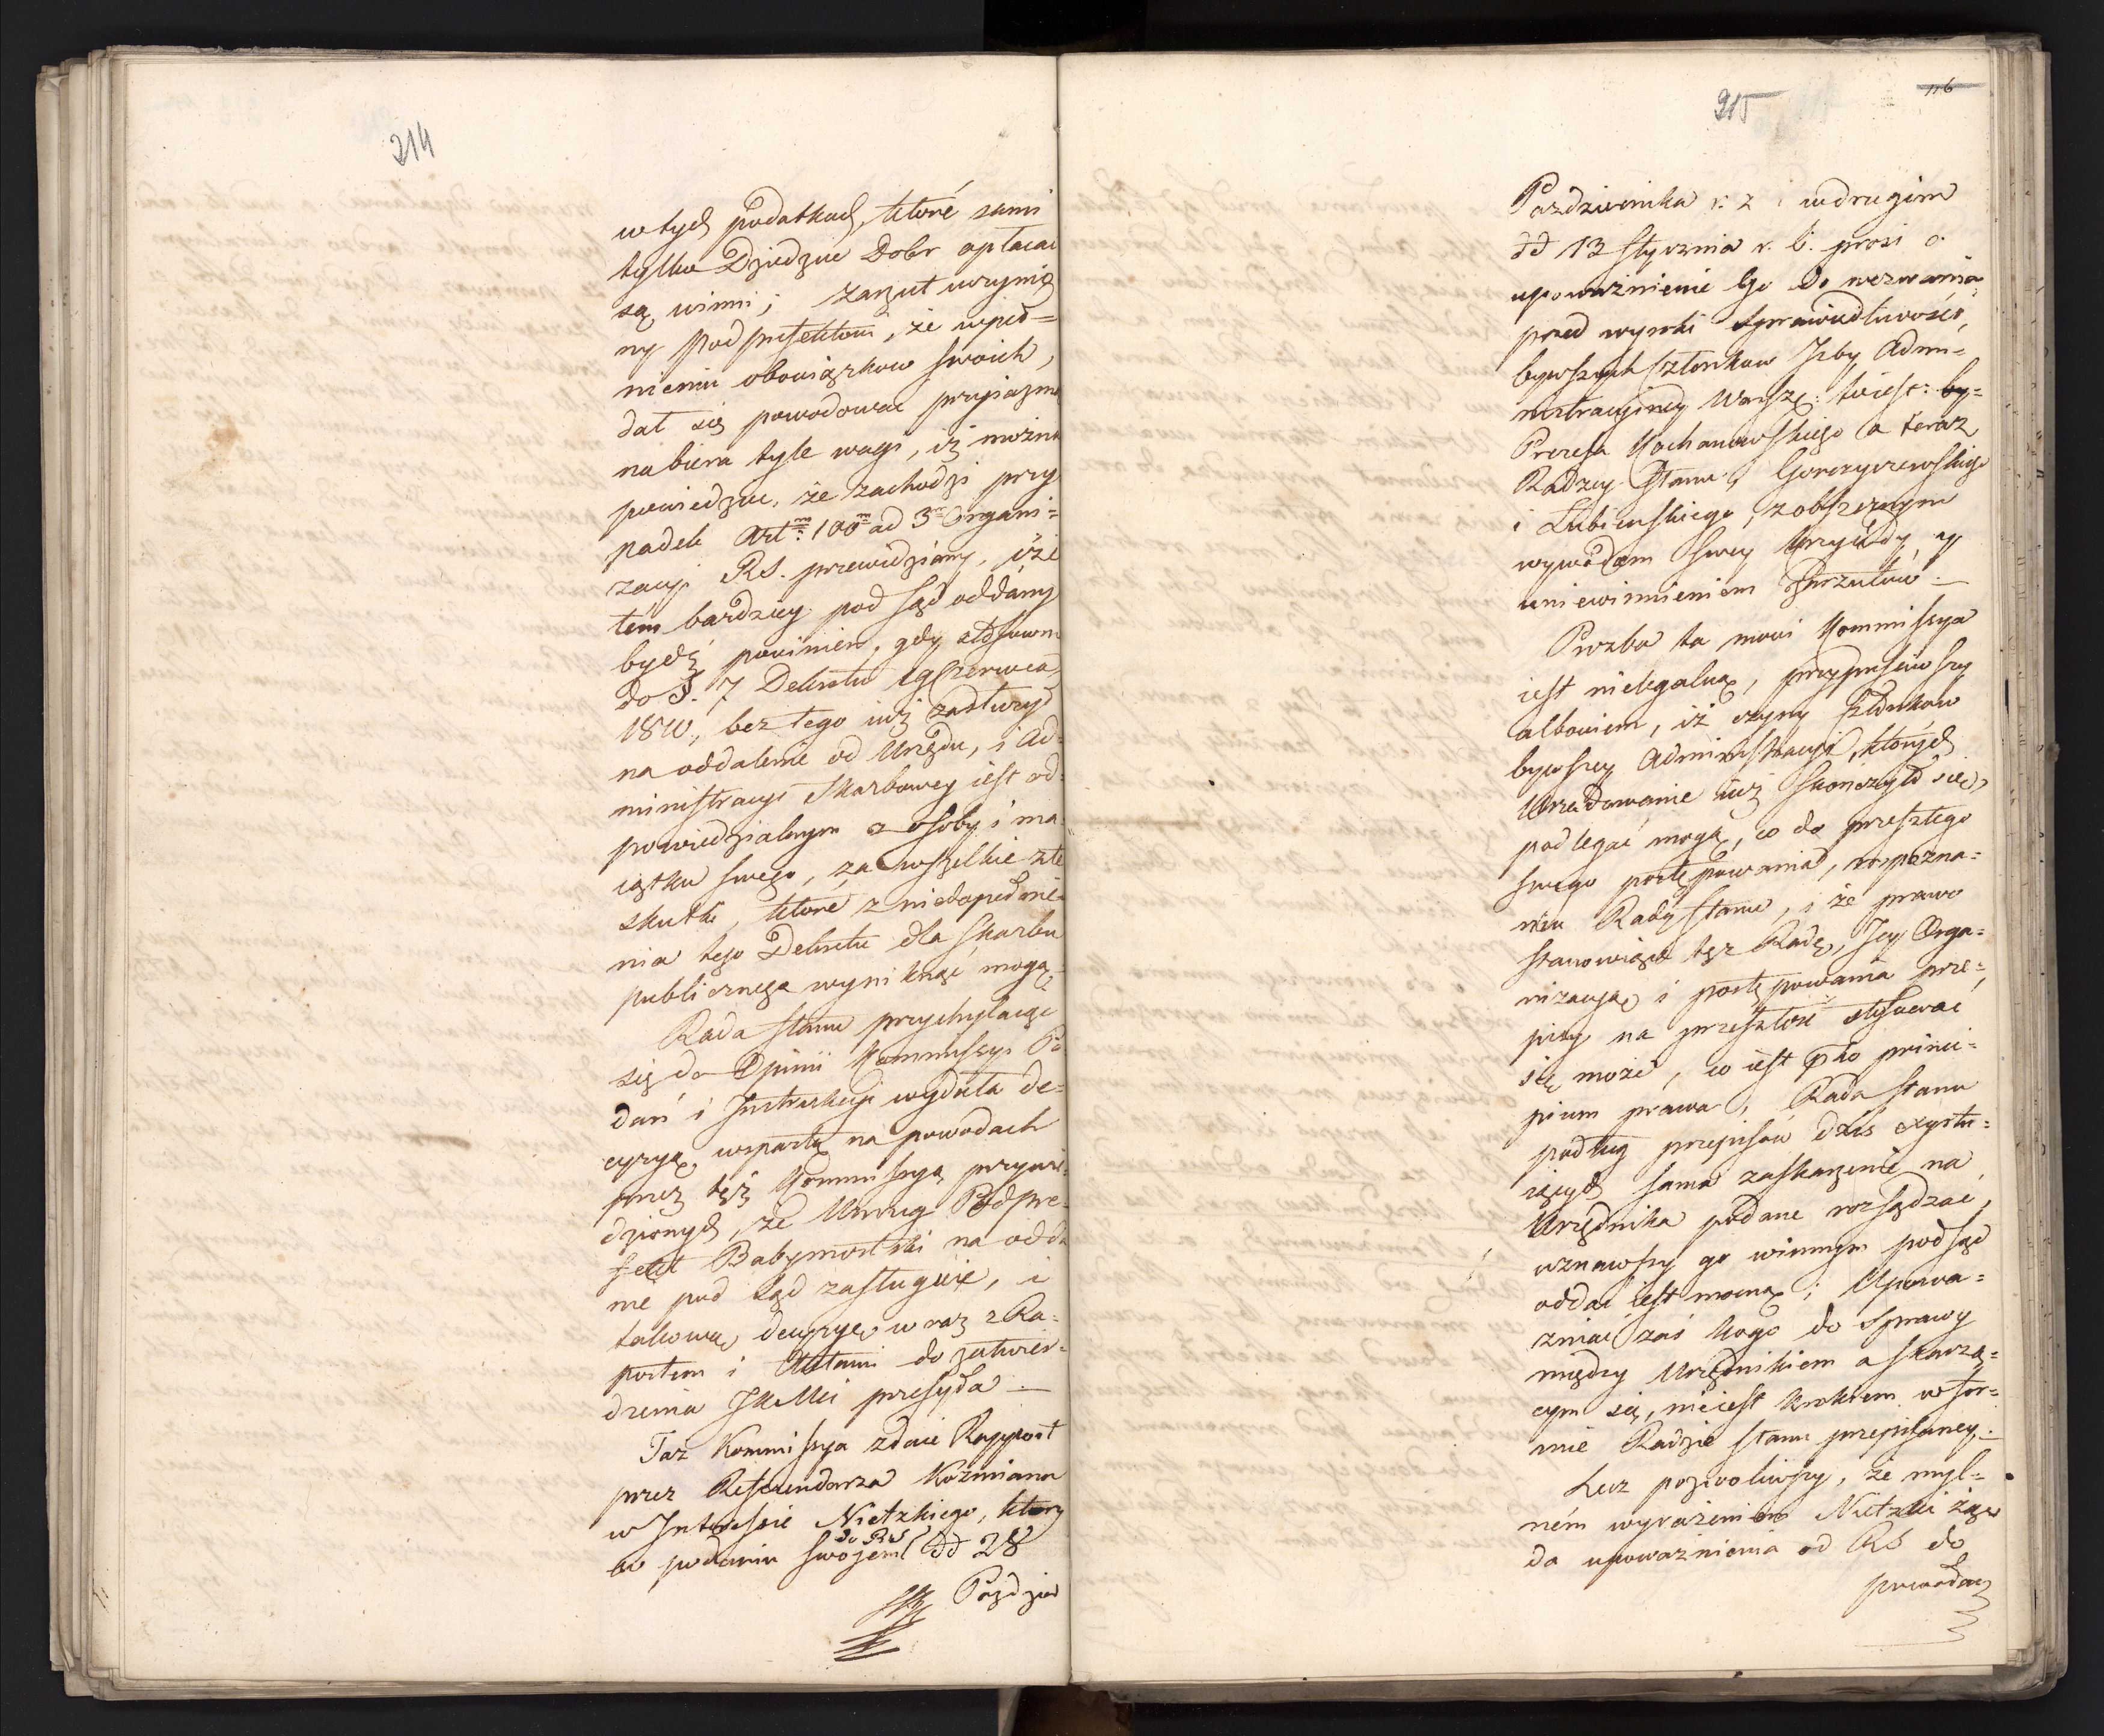 214
w tych podatkach, które sami
tylko Dziedzice Dobr opłacać
są winni; zarzut uczynio
ny Podprefektowi, że w peł=
nieniu obowiązkow swoich,
dał się powodować przyiazni
nabiera tyle wagi, iż można
powiedzieć, że zachodzi przy
padek Art. 100 ad 3 Organi=
zacyi RS. przewidziany, iże
tém bardziey pod sąd oddany
bydź powinien, gdy stosownie
do §. 7 Dekretu Czerwca
1810, bez tego iuż zasłużył
na oddalenie od Urzędu, i Ad=
ministracyi Skarbowey iest od=
powiedzialnym z osoby i ma=
iątku swego, za wszelkie złe
skutki, które z niedopełnie=
nia tego Dekretu dla Skarbu
publicznego wyniknąć mogą
Rada Stanu przychylaiąc
się do Opinii Kommissyi Po
dań i Instrukcyi wydała de=
cyzyą, wspartą na powodach
przez tęż Kommissyą przywie=
dzionych, że Urzędujący Podpre=
fekt Babymostski na odda
nie pod sąd zasługuie, i
takową decyzyę wraz z Ra=
portem i Aktami do zatwier=
dzenia JKMci przesyła —
Taż Kommissya zdaie Rapport
przez Referendarza Koźmiana
w Interessie Nietzkiego, który
w podaniu swojem do RS dd 28
Paździer
215
116
Pazdziernika r: z i w drugim
dd 13 Stycznia r. b. prosi o
upoważnienie Go do wezwania
przed wyroki Sprawiedliwości,
bywszych Członkow Izby Admi=
nistracyiney Warsz: to iest: by=
Prezesa Kochanowskiego a teraz
Radzcy Stanu, Gorczyczewskiego
i Lubienskiego, z obszernym
wywodem swey krzywdy, y
uniewinnieniem zarzutów —
Prozba ta mowi Kommissya
iest nielegalną, przypuściwszy
albowiem, iż czyny Członkow
bywszey Administracyi, których
Urzędowanie iuż skończyło się,
podlegać mogą, co do przeszłego
swego postępowania, rozpozna=
niu Rady Stanu, i że prawo
stanowiące też Radę, Jey Orga=
nizacyą i postępowania prze=
pisy na przeszłość stosować
się może, co iest pło princi=
pium prawa, Rada Stanu
podług przepisów dziś exystu=
iących sama zaskarżenie na
Urzędnika podane rozsądzać,
uznawszy go winnym pod sąd
oddać iest mocną; Upowa=
żniać zaś kogo do Sprawy
między Urzędnikiem a skarżą=
cym się, nie iest krokiem w for=
mie Radzie Stanu przepisaney.
Lecz pozwoliwszy, że myl=
ném wyrażeniem Nietzki żąda
da upoważnienia od RS do
powodow